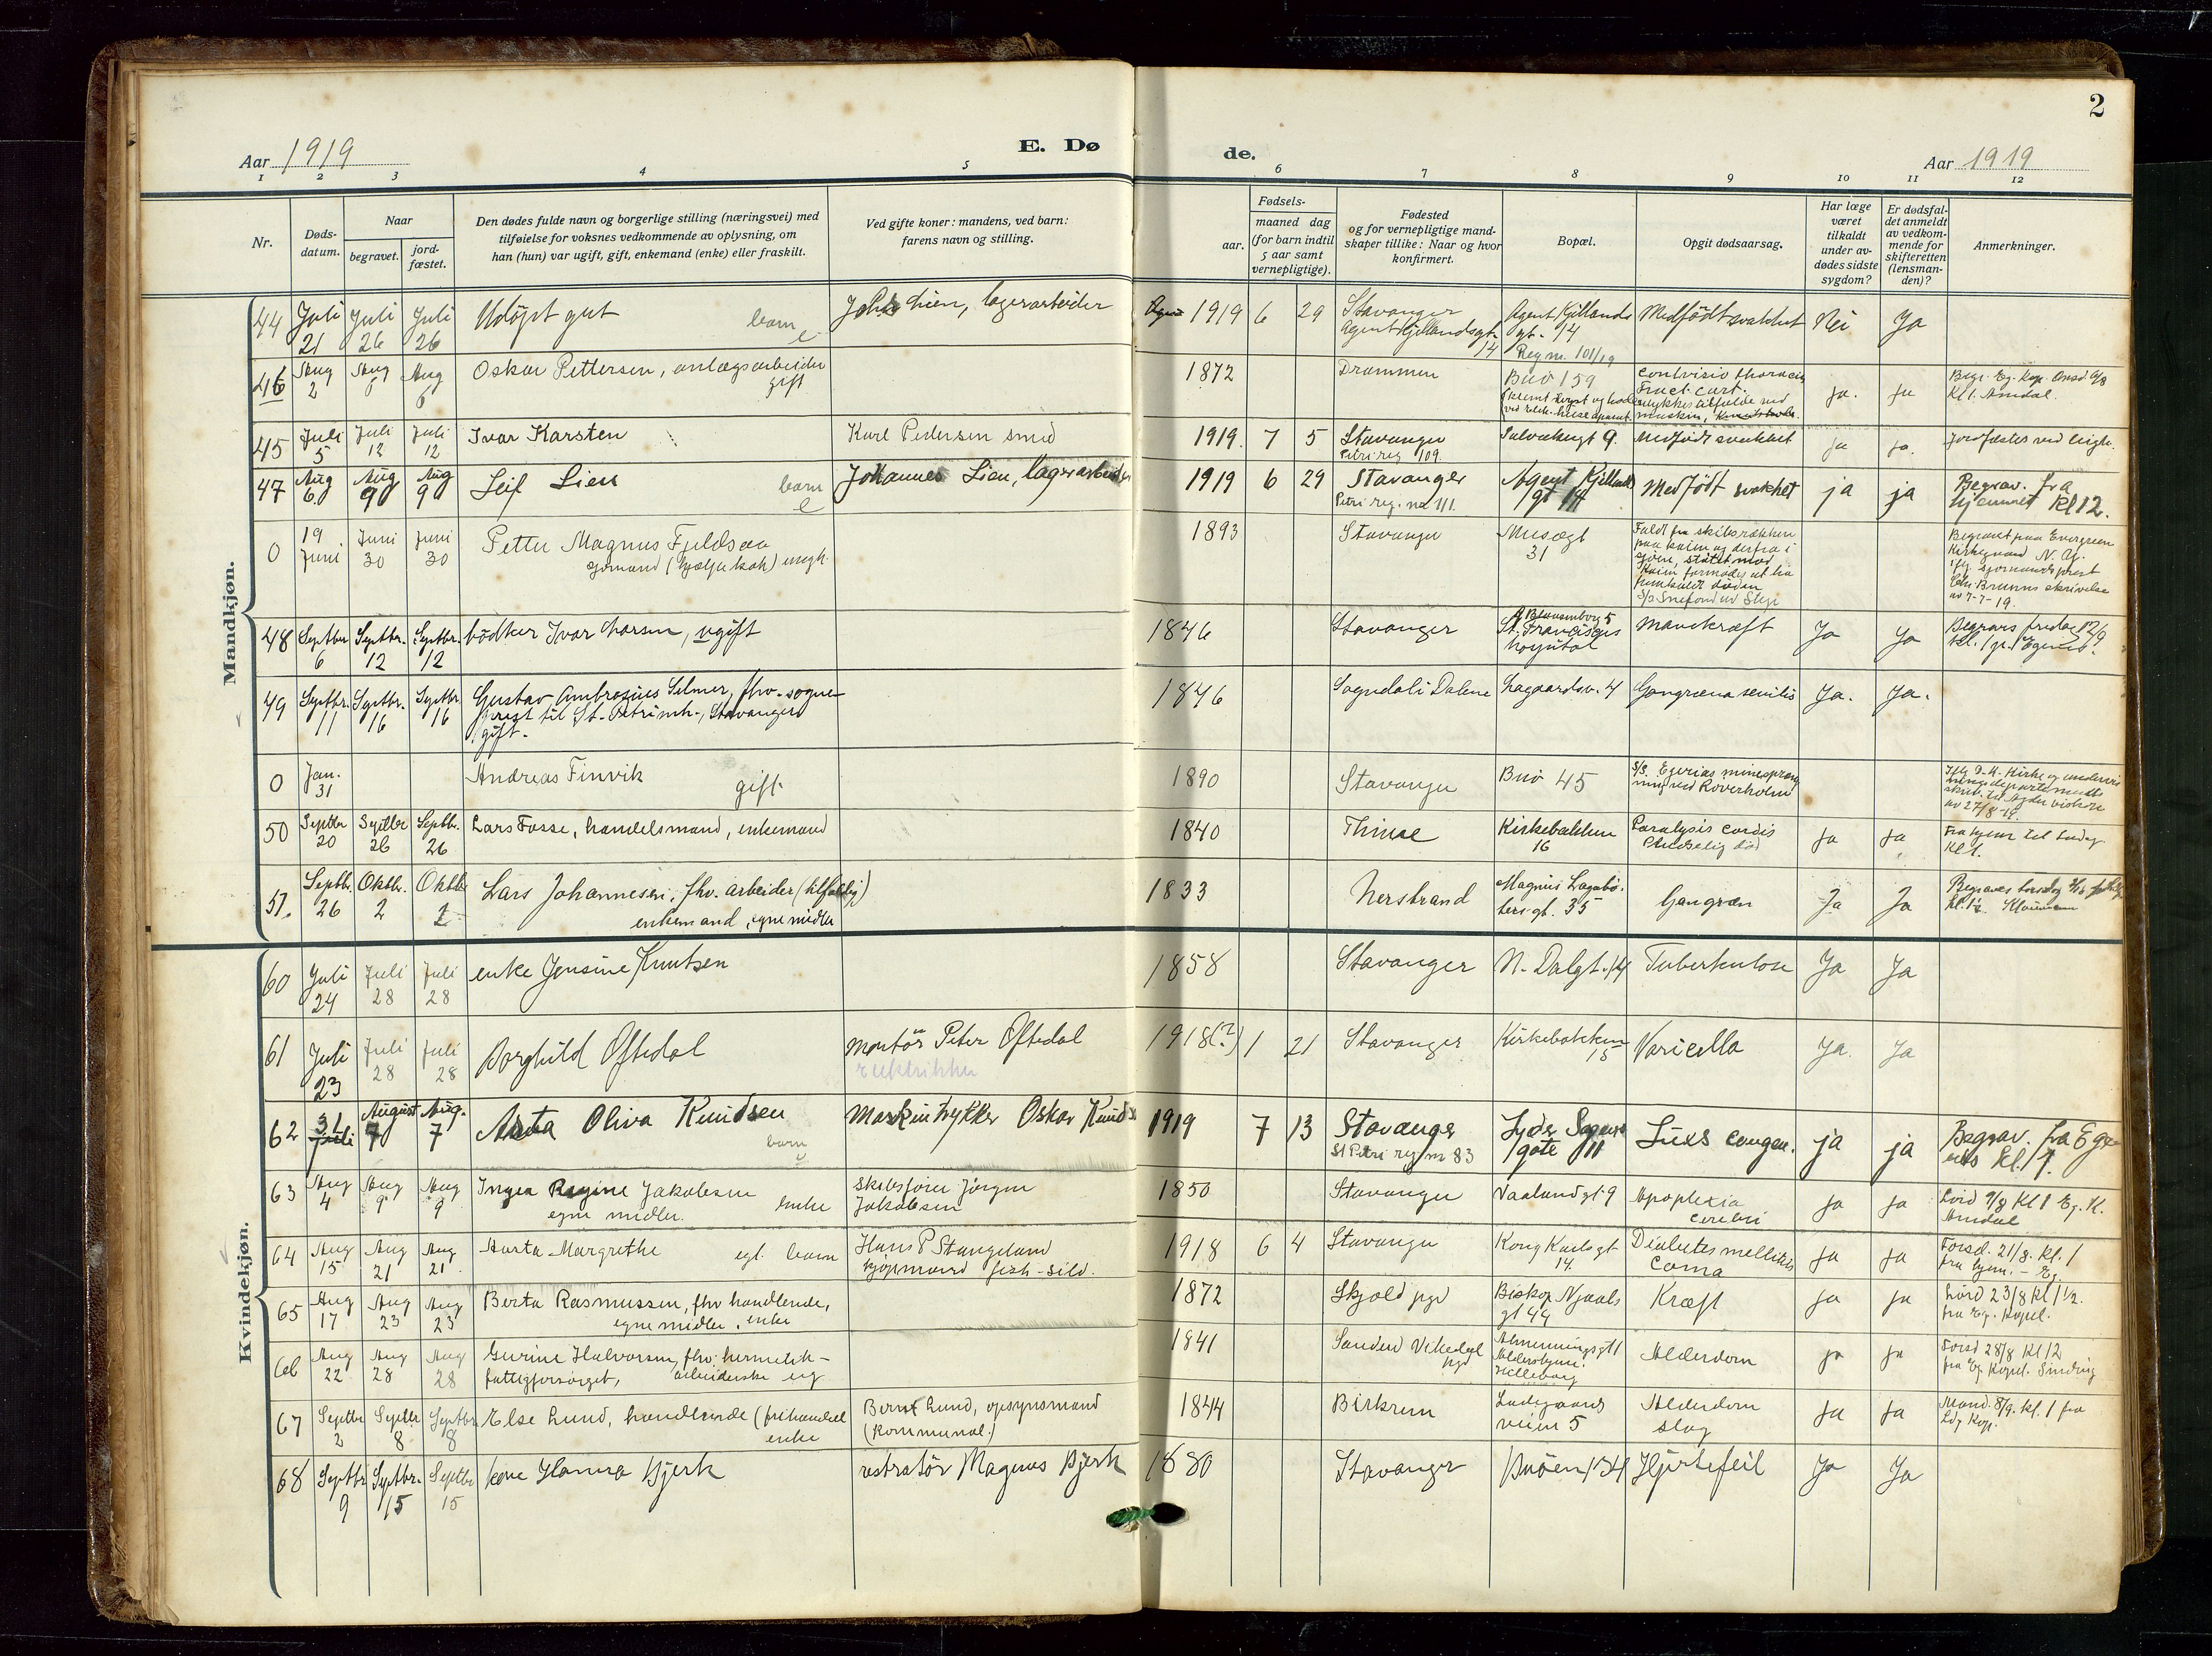 2
Aar 1919
E. Dø
de.
Aar 1919
1 2 3 4 5 6 7 8 9 10 11 12
Nr.
Døds-
datum.
Naar
begravet.
jord-
fæstet.
Den dødes fulde navn og borgerlige stilling (næringsvei) med
tilføielse for voksnes vedkommende av oplysning, om
han (hun) var ugift, gift, enkemand (enke) eller fraskilt.
Ved gifte koner: mandens, ved barn:
farens navn og stilling.
Fødsels-
aar.
maaned dag
(for barn indtil
5 aar samt
vernepligtige).
Fødested
og for vernepligtige mand-
skaper tillike: Naar og hvor
konfirmert.
Bopæl.
Opgit dødsaarsag.
Har læge
været
tilkaldt
under av-
dødes sidste
sygdom?
Er dødsfal-
det anmeldt
av vedkom-
mende for
skifteretten
(lensman-
den)?
Anmerkninger.
Mandkjøn.
44 Juli 21 Juli 26 Juli 26 Udöpt gut barn e Lien, lagerarbeider 1919 6 29 Stavanger Agent Kjellandsgt. 14 Agent Kjellands gt. 14 Medfödt svakhet Nei Ja
Reg nr. 101/19
46 Aug 2 Aug 6 Aug 6 Oskar Pettersen, anlægsarbeider gift 1872 Drammen Buö 159 contusio thoracis Fract. cart. ulykkestilfælde ved maskin, ja. ja Begr. Eg. kap. Onsd. 6/8 Kl 1. Amdal.
45 Juli 5 Juli 12 Juli 12 Ivar Karsten Karl Pedersen smed 1919. 7 5 Stavanger Petri reg 109. 9. Medfödt svakhet ja ja. Jordfæstes ved
47 Aug 6 Aug 9 Aug 9 Leif Lien barn e Johannes Lien, lagerarbeider 1919 6 29 Stavanger Petri reg. no 111. Agent Kjellands gt 14 Medfödt svakhet ja ja Begrav. fra hjemmet Kl 12.
0 19 Juni Juni 30 Juni 30 Petter Magnus Fjeldsaa sjömand ugift. 1893 Stavanger Musegt 31 Faldt fra skibsrækken paa kaien og derfra i sjöen, stötet mod kaien formodes at ha döden Begravet paa Evergreen Kirkegaard N. Y. ifg. sjömandsprest Bruuns skrivelse av 7-7-19.
48 Septbr 6 Septbr. 12 Septbr. 12 bödker Ivar Larsen, ugift 1846 Stavanger Blaasenborg 5 St. Franciskus hospital Mavekræft Ja Ja Begraves fredag 12/9 kl. 1
49 Septbr. 11 Septbr. 16 Septbr. 16 Gustav Ambrosius Selmer, fhv. sogne- prest til St. Petri mh., Stavanger gift. 1846 Sogndal i Dalene Lagaardsv. 4 Gangræna senilis Ja. Ja.
0 Jan. 31 Andreas Finvik gift 1890 Stavanger Buö 45 S/S. Egerias minespræng- ning ved Roverholm
50 Septbr 20 Septbr 26 Septbr. 26 Lars Fosse, handelsmand, enkemand 1840 Kirkebakken 16 Paralysis cordis Pludselig död ja ja Fra hjem til Kl 1.
51. Septbr. 26 Oktbr. 2 Oktbr 2 Lars Johannesen, fhv. arbeider (tilfældig) enkemand, egne midler 1833 Nerstrand Magnus Lagabö- tersgt. 35 Gangræn Ja Ja Begraves torsdag
Kvindekjøn.
60 Juli 24 Juli 28 Juli 28 enke Jensine Knutsen 1858 Stavanger N. Dalgt. 14 Tuberkulose Ja Ja
61 Juli 23 Juli 28 Juli 28 Borghild Oftedal Montör Peter Oftedal elektriker 1918(?) 1 21 Stavanger Kirkebakken 15 Varicella Ja. Ja
62 31 Juli August 7 Aug. 7 Oliva Knudsen barn Maskintrykker Oskar Knudsen 1919 7 13 Stavanger St Petri reg nr 83 Lyder Sagens gate 11 Lues congen. ja ja Begrav. fra Ege- nes kl. 1.
63 Aug 4 Aug 9 Aug 9 Inga Regine Jakobsen egne midler. enke skibsförer Jörgen Jakobsen 1850 Stavanger Vaalandgt 9 Apoplexia cerebri ja ja Lörd 9/8 Kl 1 Eg. K. Amdal
64 Aug 15 Aug 21 Aug 21 Aasta Margrethe egt. barn Hans P Stangeland kjöpmand fisk-sild. 1918 6 4 Stavanger Kong Karlsgt 14. Diabetes mellitus Coma ja ja Torsd. 21/8. kl. 1 fra hjem. - Eg.
65 Aug 17 Aug 23 Aug 23 Berta Rasmussen, fhv handlende, egne midler, enke 1872 Skjold pgd Biskop Njaals gt 44 Kræft ja ja Lörd 23/8 kl 1 1/2. fra Eg. Kapel.
66 Aug 22 Aug 28 Aug 28 Gurine Halvorsen, fhv. hermetik- fattigforsörget, arbeiderske ug 1841 Vikedal pgd Almenningsgt 1 Aldershjem Alderdom ja ja Torsd 28/8 Kl 12 fra Eg. Kapel. Sindring
67 Septbr 2 Septbr 8 Septbr 8 Else Lund, handlende (frihandel enke Bernt Lund, opsynsmand (kommunal.) 1844 Birkrem Ladegaards veien 5 Alderdom slag ja ja Mand. 8/9. kl. 1 fra Ldg Kap.
68 Septbr 9 Septbr. 15 Septbr 15 kone Hanna Bjerk restratör Magnus Bjerk 1880 Stavanger Buöen 134 Hjertefeil Ja Ja